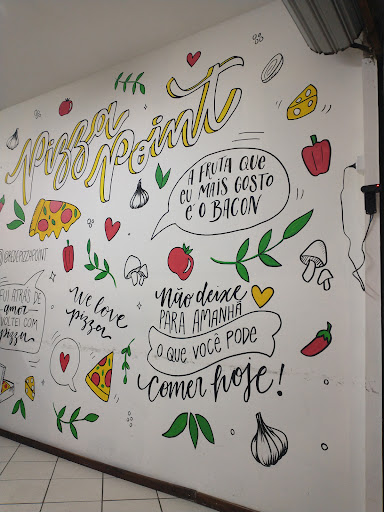 Pizza
Point
A FRUTA QUE
EU MAIS GOSTO
É O BACON
@REDEPIZZAPOINT
FUI ATRÁS DE
amor
VOLTEI COM
pizza
We love
pizza
Não deixe
PARA AMANHÃ
O QUE VOCÊ PODE
comer hoje!